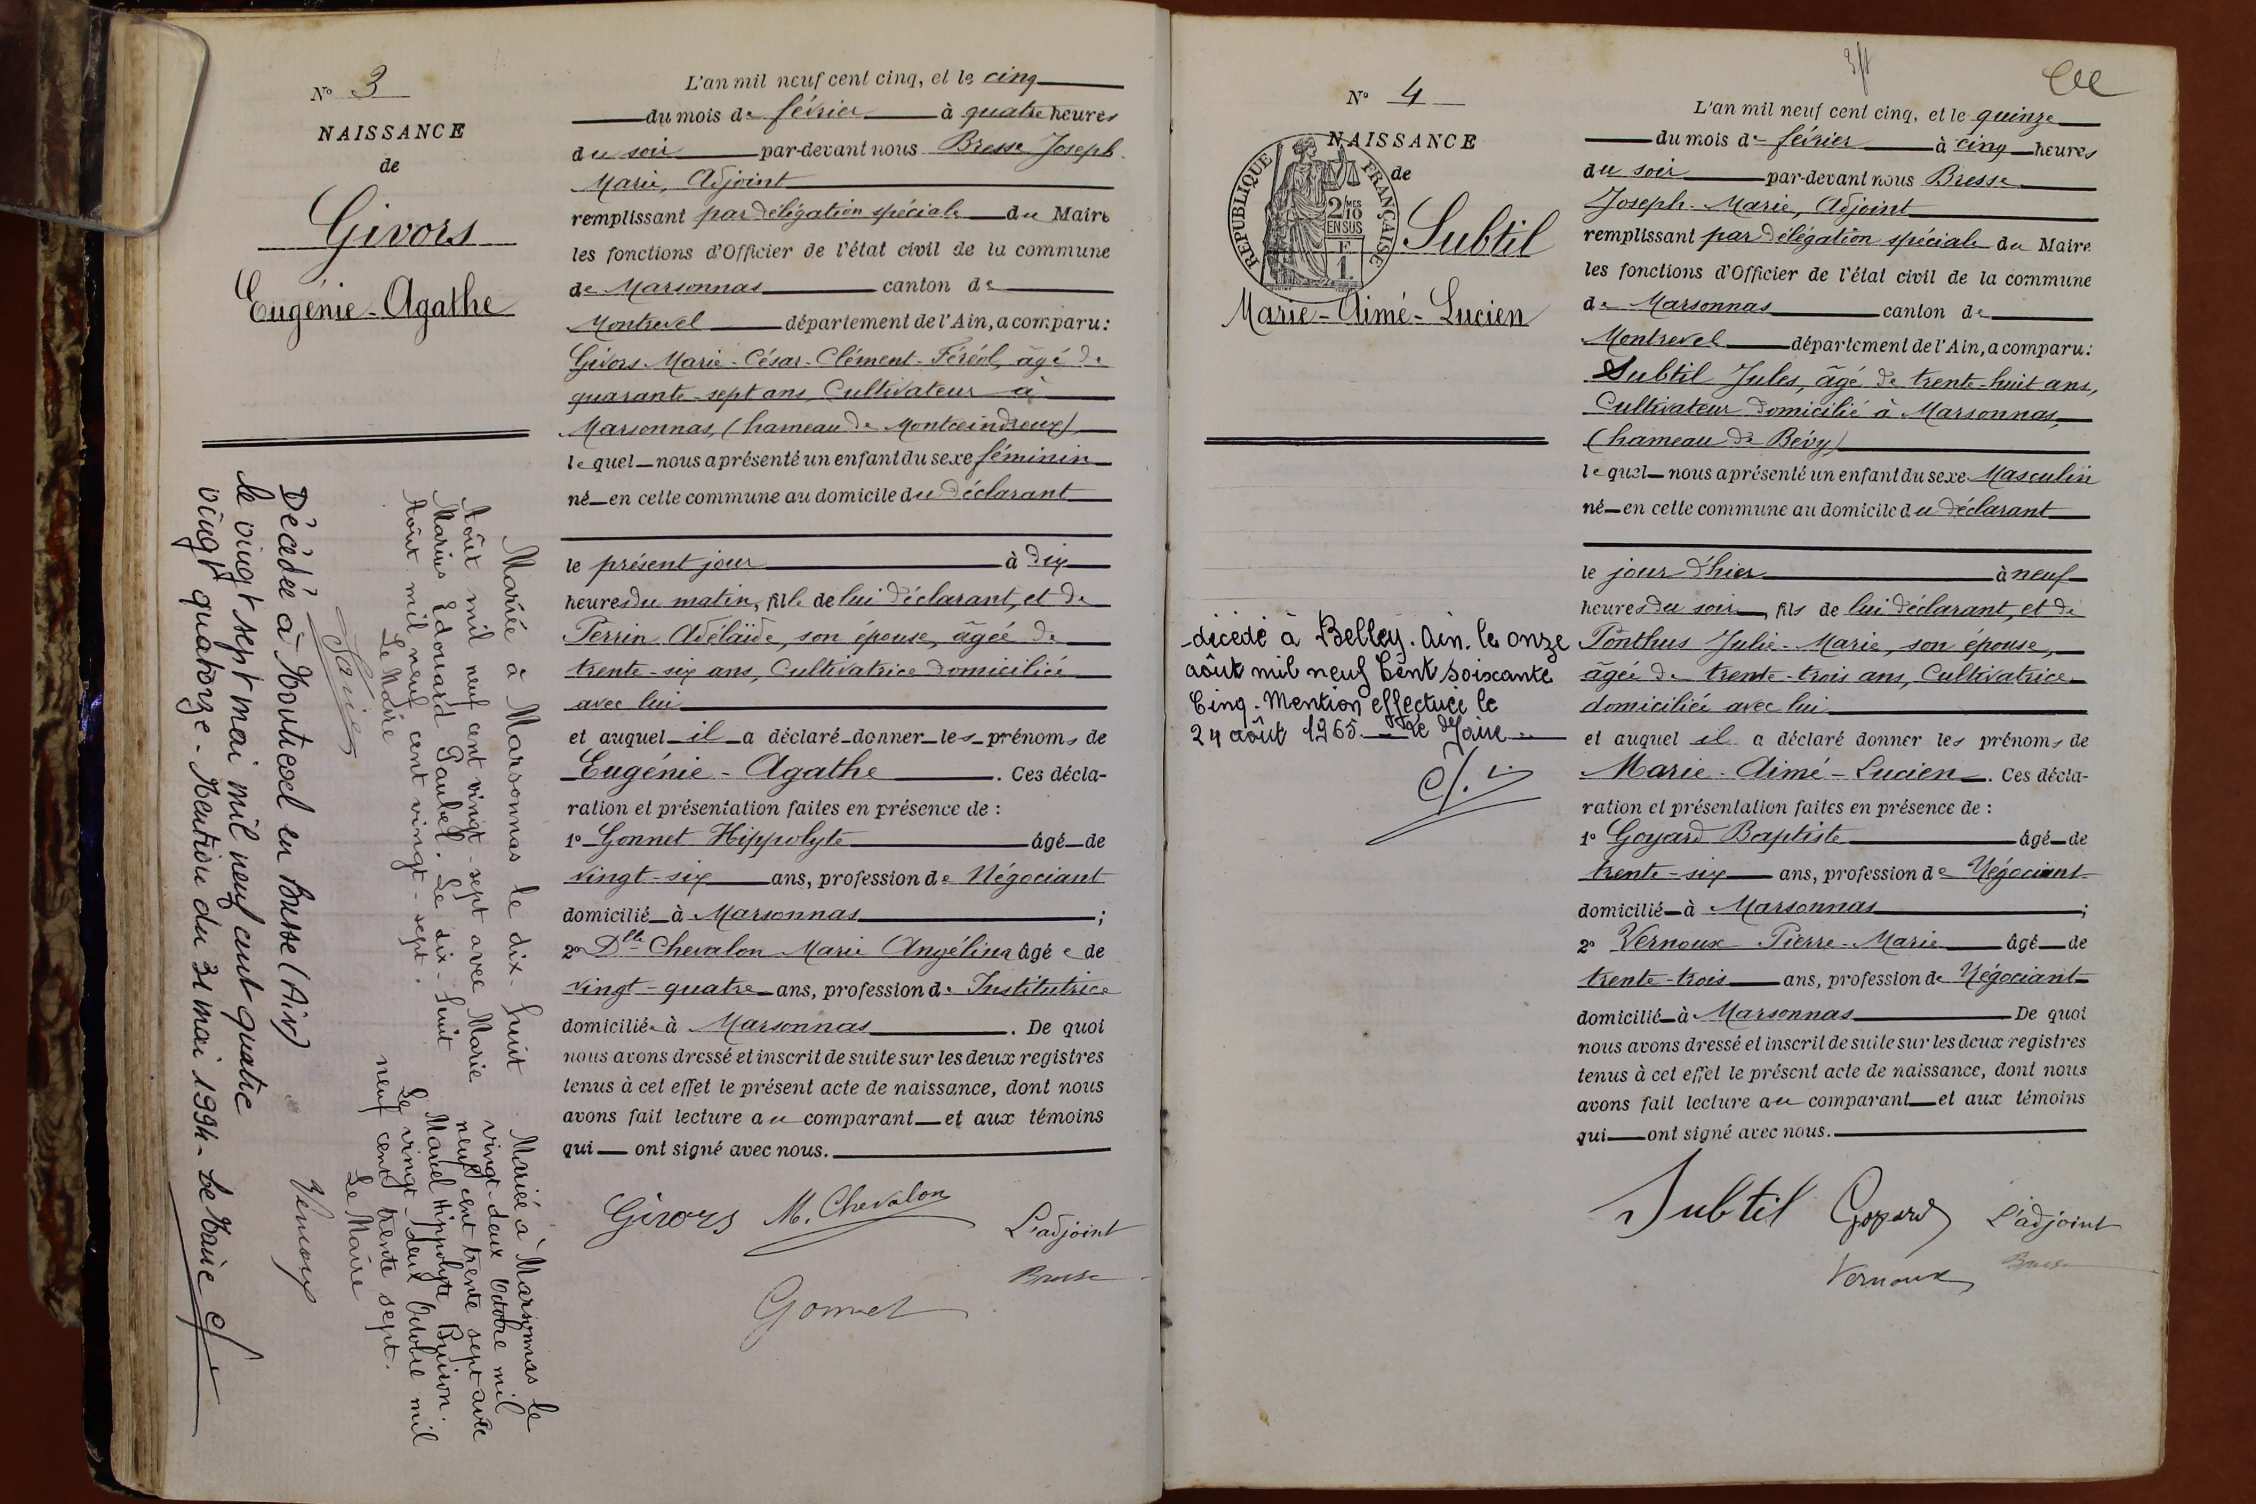 N° 3
NAISSANCE
de
Givors
Eugénie-Agathe
L'an mil neuf cent cinq, et le cinq
du mois de février à quatre heures
du soir par-devant nous Bresse Joseph
Marie, Adjoint
remplissant par délégation spéciale du Maire
les fonctions d'Officier de l'état civil de la commune
de Marsonnas canton de
Montrevel département de l'Ain, a comparu :
Givors Marie-César-Clément-Féréol, âgé de
quarante-sept ans, Cultivateur à
Marsonnas, (hameau de Montceindroux)
lequel nous a présenté un enfant du sexe féminin
né en cette commune au domicile du déclarant
le présent jour à dix
heures du matin, fille de lui déclarant, et de
Perrin Adélaïde, son épouse, âgée de
trente-six ans, Cultivatrice domiciliée
avec lui
et auquel il a déclaré donner les prénoms de
Eugénie-Agathe. Ces décla-
ration et présentation faites en présence de :
1° Gonnet Hippolyte âgé de
vingt-six ans, profession de Négociant
domicilié à Marsonnas ;
2° Dlle Chevalon Marie Angélina âgée de
vingt-quatre ans, profession d'Institutrice
domiciliée à Marsonnas. De quoi
nous avons dressé et inscrit de suite sur les deux registres
tenus à cet effet le présent acte de naissance, dont nous
avons fait lecture au comparant et aux témoins
qui ont signé avec nous.
Givors M. Chevalon L'adjoint
Bresse
Gonnet
Mariée à Marsonnas le dix-huit
Août mil neuf cent vingt-sept avec Marie
Marius Edouard Paubel. Le dix-huit
Août mil neuf cent vingt-sept.
Le Maire
Mariée à Marsonnas le
vingt-deux Octobre mil
neuf cent trente sept avec
Marcel Hippolyte Buiron.
Le vingt-deux Octobre mil
neuf cent trente sept.
Le Maire
Vernoux
Décédée à Montcel en Bresse (Ain)
le vingt sept mai mil neuf cent quatre
vingt quatorze - Mention du 31 mai 1994 - Le Maire
N° 4
NAISSANCE
de
REPUBLIQUE FRANÇAISE
2/10 MES
EN SUS
F
1
Subtil
Marie-Aimé-Lucien
L'an mil neuf cent cinq, et le quinze
du mois de février à cinq heures
du soir par-devant nous Bresse
Joseph-Marie, Adjoint
remplissant par délégation spéciale du Maire
les fonctions d'Officier de l'état civil de la commune
de Marsonnas canton de
Montrevel département de l'Ain, a comparu :
Subtil Jules, âgé de trente-huit ans,
Cultivateur domicilié à Marsonnas,
(hameau de Bévy)
lequel nous a présenté un enfant du sexe Masculin
né en cette commune au domicile du déclarant
le jour d'hier à neuf
heures du soir, fils de lui déclarant, et de
Ponthus Julie-Marie, son épouse,
âgée de trente-trois ans, Cultivatrice
domiciliée avec lui
et auquel il a déclaré donner les prénoms de
Marie-Aimé-Lucien. Ces décla-
ration et présentation faites en présence de :
1° Goyard Baptiste âgé de
trente-six ans, profession de Négociant
domicilié à Marsonnas ;
2° Vernoux Pierre-Marie âgé de
trente-trois ans, profession de Négociant
domicilié à Marsonnas De quoi
nous avons dressé et inscrit de suite sur les deux registres
tenus à cet effet le présent acte de naissance, dont nous
avons fait lecture au comparant et aux témoins
qui ont signé avec nous.
Subtil Goyard L'adjoint
Vernoux Bresse
décédé à Belley. Ain. le onze
août mil neuf cent soixante
cinq. Mention effectuée le
24 août 1965. Le Maire